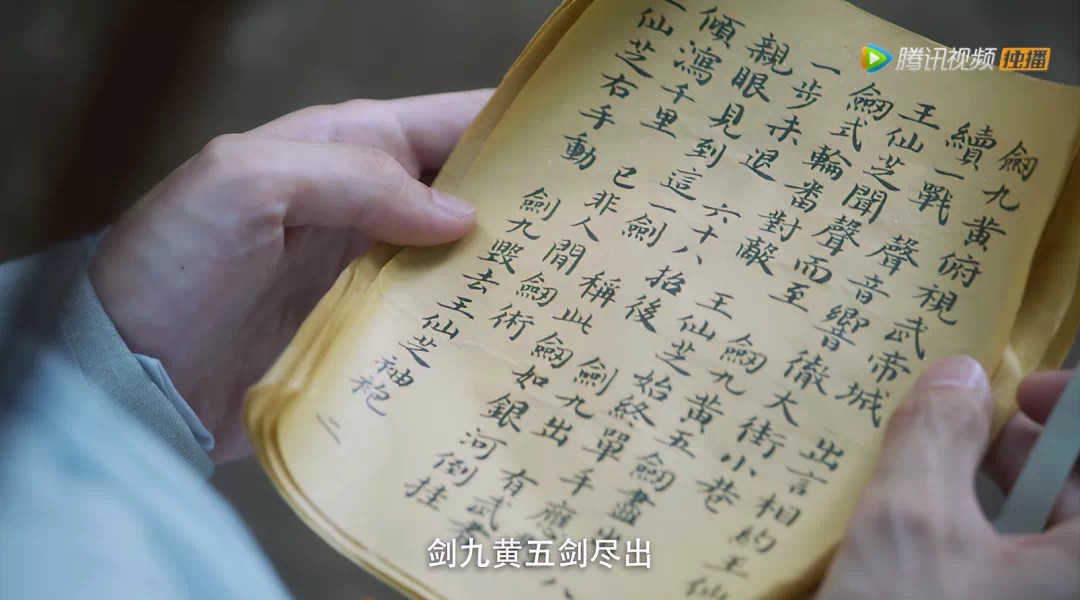 劔九黃俯視武帝城 出言相約王仙
續一戰 聲音響徹大街小巷
王仙芝聞聲而至 劔九黃五劔盡出
劔式輪番對敵 王仙芝始終單手應八
一步未退 六十八招後 劍九出 有武者
親眼見到這一劍 稱此劔如銀河倒挂
傾瀉千里 已非人間劔術
仙芝右手動 劍九毀去王仙芝袖袍 二
腾讯视频 独播
剑九黄五剑尽出